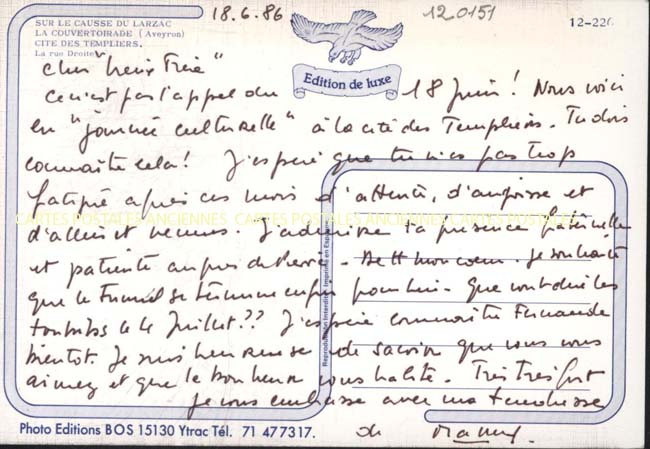 18.6.86
12.0151
12-226
SUR LE CAUSSE DU LARZAC
LA COUVERTOIRADE (Aveyron)
CITE DES TEMPLIERS.
La rue Droite
Edition de luxe
Cher
Ce n'est pas l'appel du 18 Juin ! Nous voici
en "journée culturelle" à la cité des Templiers. Tu dois
connaître cela ! J'espère que tu n'es pas trop
fatigué après ces mois d'attente, d'angoisse et
CARTES POSTALES ANCIENNES CARTES POSTALES ANCIENNES CARTES POSTALES
d'allées et venues. J'admire ta présence fraternelle
et patiente auprès de Pierre. de tt mon coeur. Je souhaite
que le tunnel se termine enfin pour lui. Que vont dire les
toubibs le 4 Juillet ?? J'espère connaître Fernande
bientôt. Je suis heureuse de savoir que vous vous
aimez et que le bonheur vous habite. Très Très fort
je vous embrasse avec ma tendresse
de
Reproduction Interdite. Imprimé en Espagne
Photo Editions BOS 15130 Ytrac Tél. 71 477317.